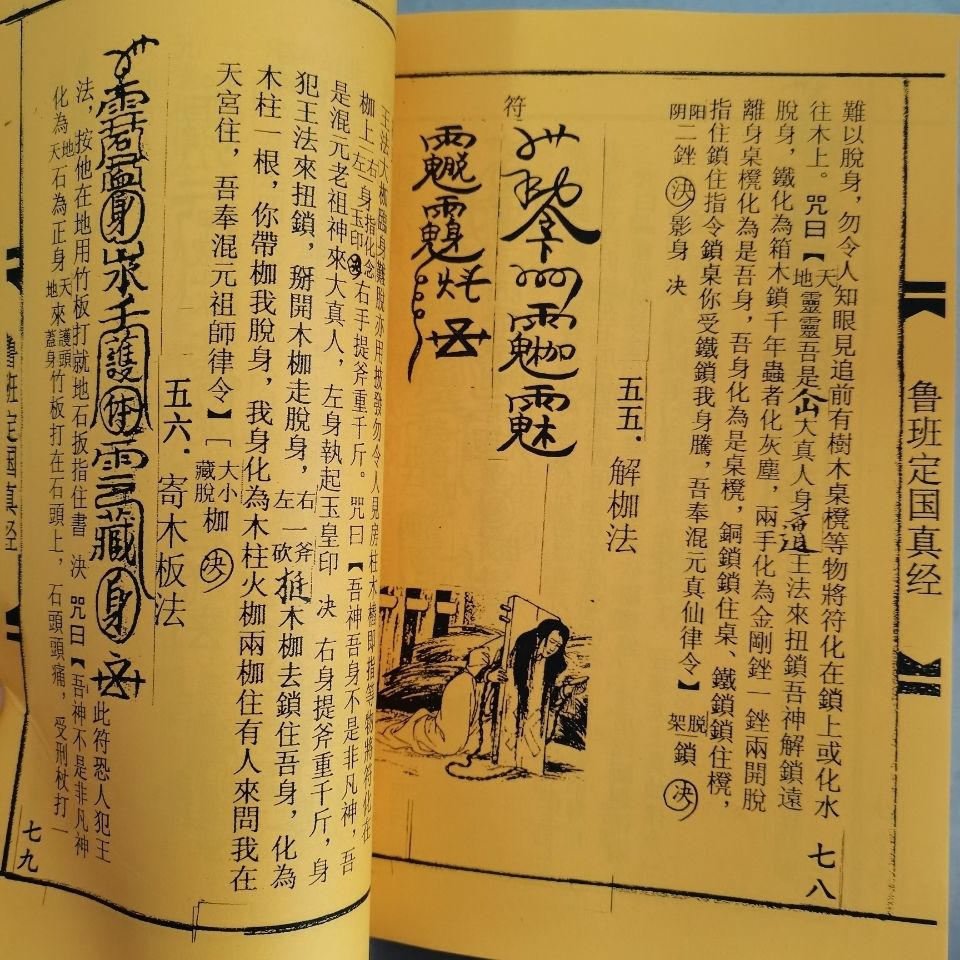 鲁班定国真经
七八
難以脫身，勿令人知眼見追前有樹木桌櫈等物將符化在鎖上或化水
往木上。咒曰【天地靈靈吾是大真人身王法來扭鎖吾神解鎖遠
脫身，鐵化為箱木鎖千年蟲者化灰塵，兩手化為金剛銼一銼兩開脫
離身桌櫈化為是吾身，吾身化為是桌櫈，銅鎖鎖住桌、鐵鎖鎖住櫈，
指住鎖住指令鎖桌你受鐵鎖我身騰，吾奉混元真仙律令】脫架鎖 決
阴阳二銼 決 影身 决
五五．解枷法
符
王法大枷臨身難脫亦用披發勿令人見房柱木樁即指等物將符化在
枷上 右左身指化念玉印 右手提斧重千斤。咒曰【吾神吾身不是非凡神，吾
是混元老祖神來大真人，左身執起玉皇印 决 右身提斧重千斤，身
犯王法來扭鎖，掰開木枷走脫身，右左一斧砍木枷去鎖住吾身，化為
木柱一根，你帶枷我脫身，我身化為木柱火枷兩枷住有人來問我在
天宮住，吾奉混元祖師律令】〔大小藏脫枷 决
五六．寄木板法
護藏身
此符恐人犯王
法，按他在地用竹板打就地石扳指住書 決 咒曰【吾神不是非凡神
化為天地石為正身天地來護頭蓋身竹板打在石頭上，石頭頭痛，受刑杖打一
七九
魯班定国真经